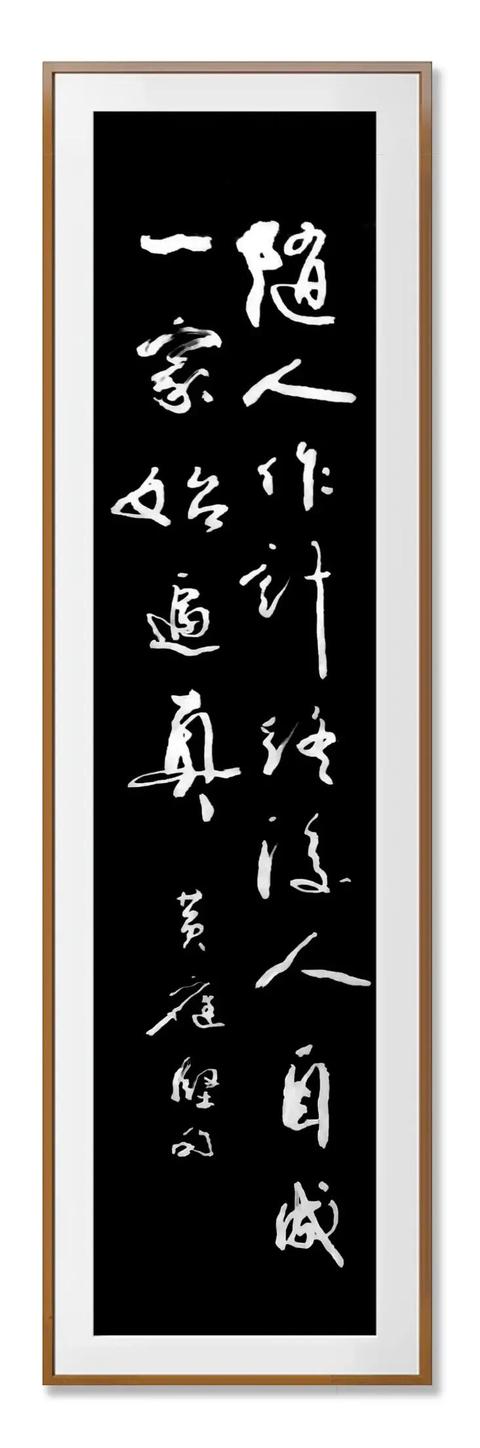 隨人作計終後人自成
一家始逼真
黄庭堅句